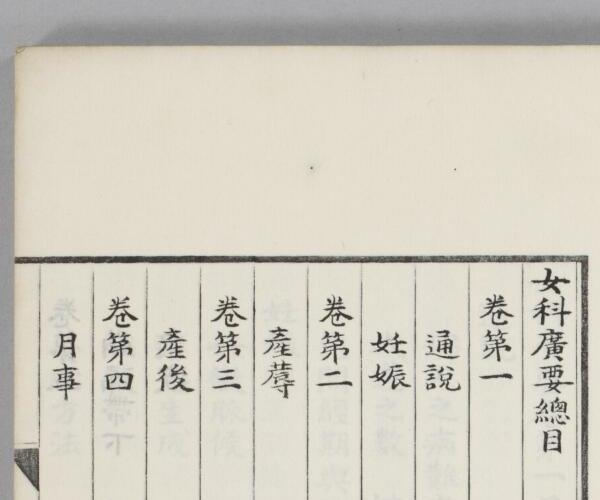 女科廣要總目
卷第一
通說
妊娠
卷第二
產蓐
卷第三
產後
卷第四
月事